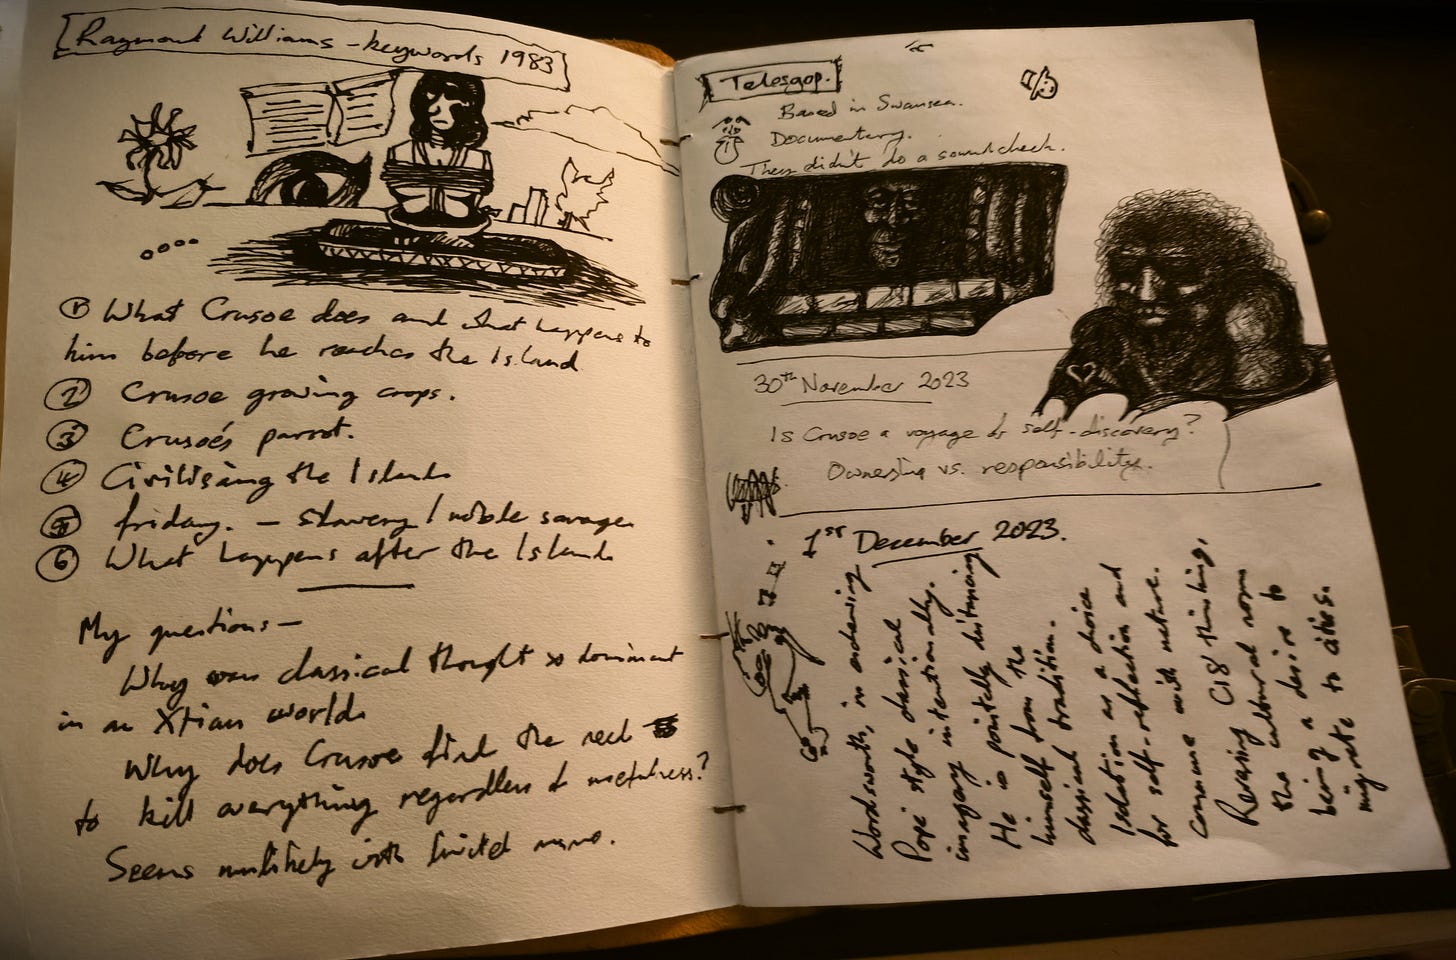 Raymond Williams - keywords 1983
① What Crusoe does and what happens to
him before he reaches the Island
② Crusoe growing crops.
③ Crusoe's parrot.
④ Civilising the Island
⑤ friday. - slavery / noble savage
⑥ What happens after the Island
My questions -
Why was classical thought so dominant
in an Xtian world
Why does Crusoe find the need
to kill everything regardless of usefulness?
Seems unlikely with limited ammo.
Telesgop.
Based in Swansea.
Documentary.
They didn't do a soundcheck.
30th November 2023
Is Crusoe a voyage of self-discovery?
Ownership vs. responsibility.
1st December 2023.
Wordsworth, is
Pope style classical
imagery intentionally.
He is pointedly distancing
himself from the
classical tradition.
Isolation as a choice
for self-reflection and
commune with nature.
Reversing C18 thinking,
the cultural norm
being a desire to
migrate to cities.